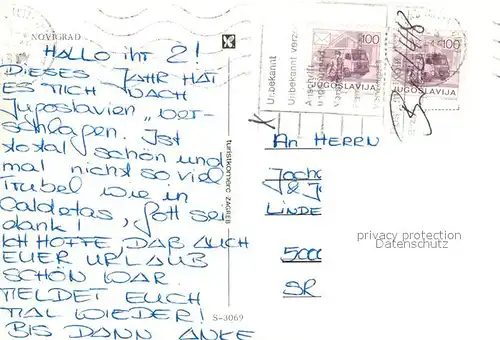 NOVIGRAD
HALLO ihr 2!
DIESES JAHR HAT
ES MICH NACH
Jugoslavien "ver-
schlagen. Ist
total schön und
mal nicht so viel
Trubel wie in
Caldetas, Gott sei
dank!
ICH HOFFE DAß AUCH
EUER URLAUB
SCHÖN WAR.
MELDET EUCH
MAL WIEDER!
BIS DANN ANKE
turistkomerc ZAGREB
S-3069
Unbekannt
Unbekannt verz
100
JUGOSLAVIJA
100
JUGOSLAVIJA
X
AN HERRN
Joch
& J
LINDE
5000
privacy protection
Datenschutz